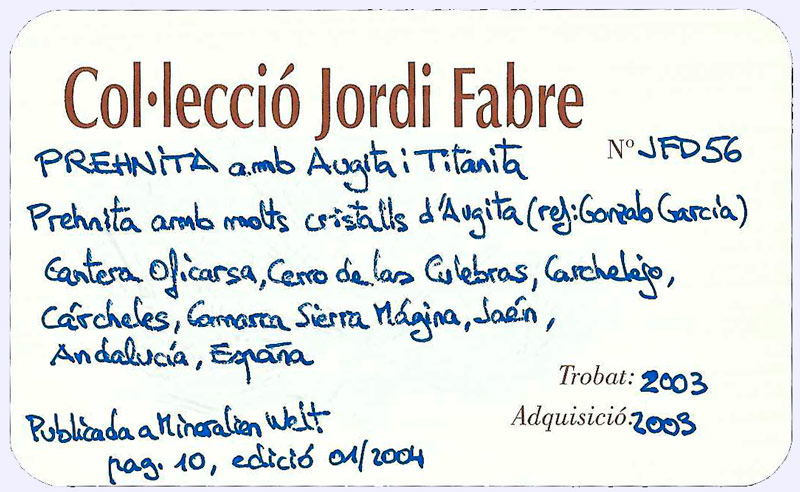 Col·lecció Jordi Fabre
PREHNITA amb Augita i Titanita Nº JFD56
Prehnita amb molts cristalls d'Augita (ref: Gonzalo García)
Cantera Oficarsa, Cerro de las Culebras, Carchelejo,
Cárcheles, Comarca Sierra Mágina, Jaén,
Andalucía, España
Trobat: 2003
Adquisició: 2003
Publicada a Mineralien Welt
pag. 10, edició 01/2004